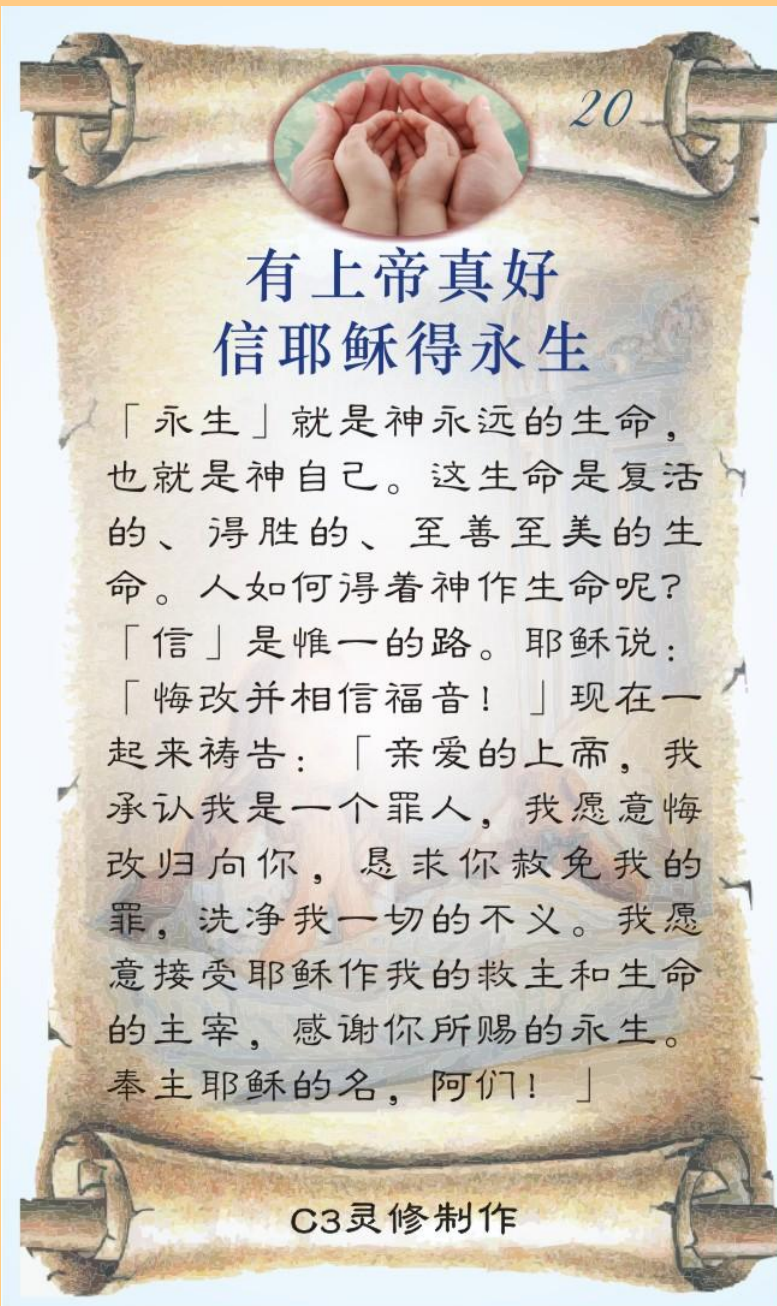 20
有上帝真好
信耶稣得永生
「永生」就是神永远的生命，
也就是神自己。这生命是复活
的、得胜的、至善至美的生
命。人如何得着神作生命呢?
「信」是惟一的路。耶稣说：
「悔改并相信福音！」现在一
起来祷告：「亲爱的上帝，我
承认我是一个罪人，我愿意悔
改归向你，恳求你赦免我的
罪，洗净我一切的不义。我愿
意接受耶稣作我的救主和生命
的主宰，感谢你所赐的永生。
奉主耶稣的名，阿们！」
C3灵修制作